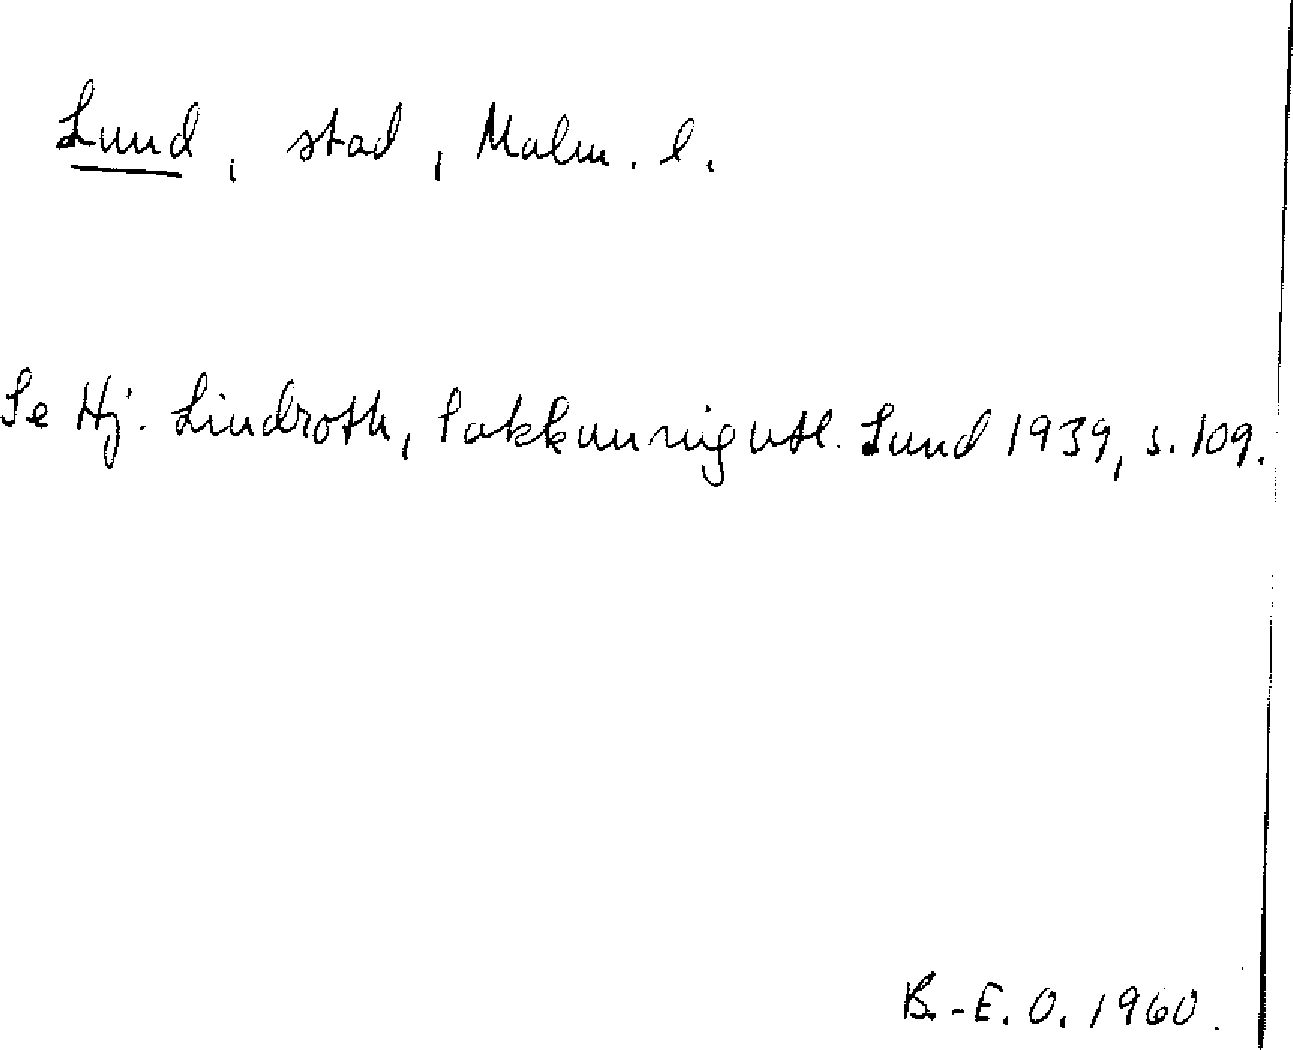 Lund, stad, Malm. l.
Se Hj. Lindroth, Sakkunnigutl. Lund 1939, s. 109.
B.-E. O. 1960.